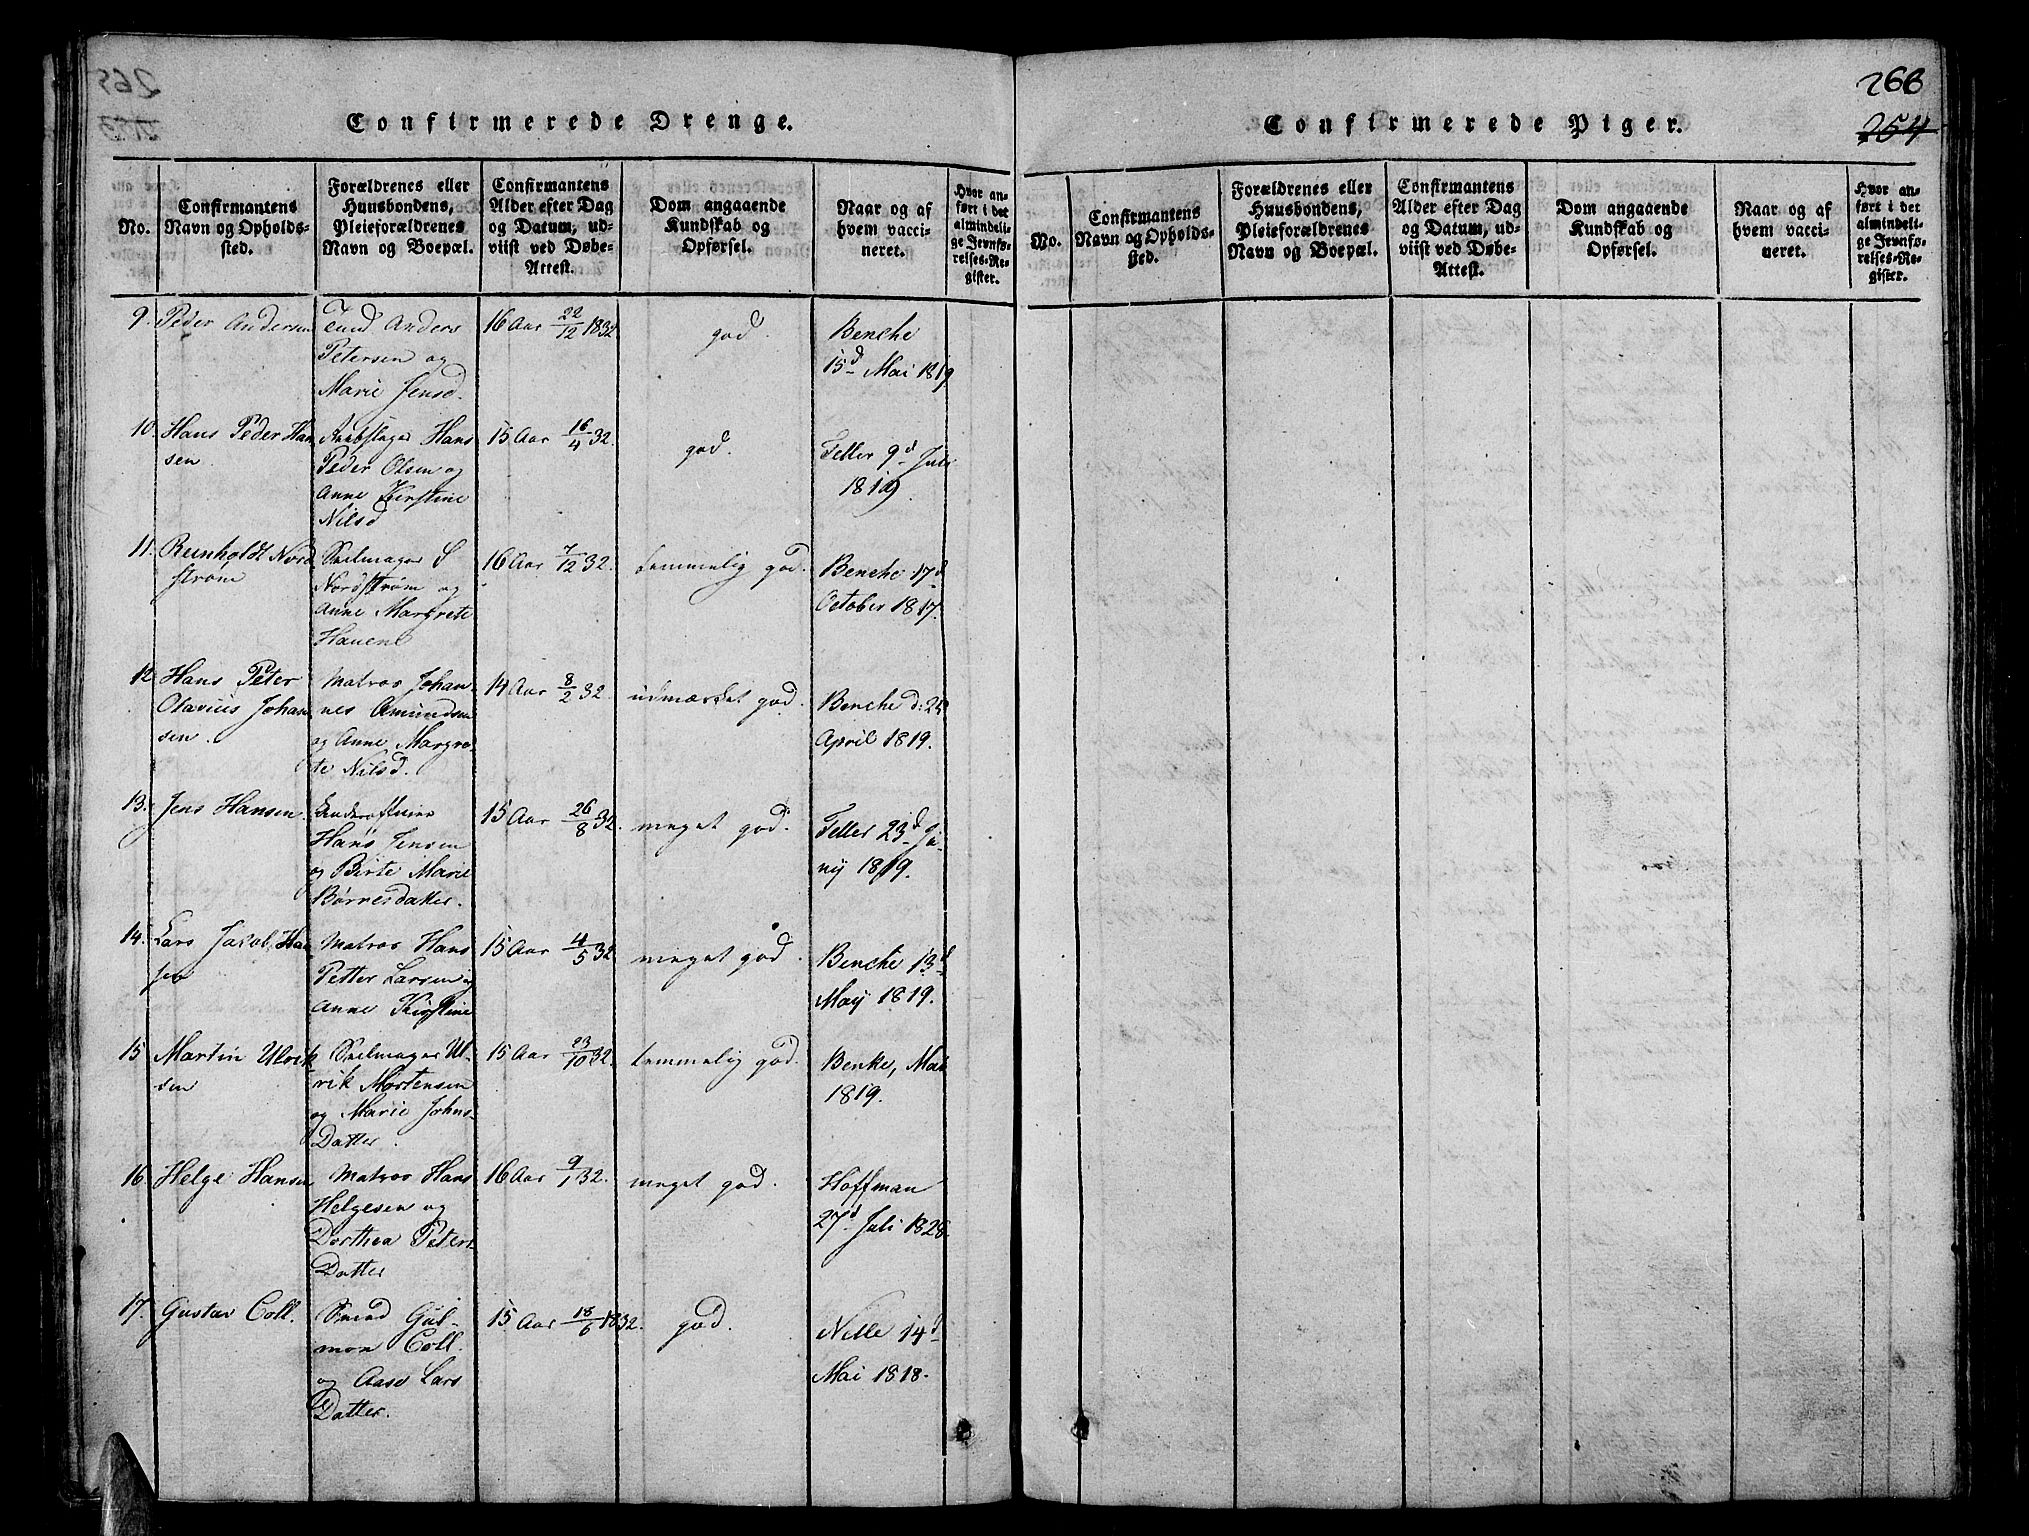 Confirmerede Drenge.
No.
Confirmantens
Navn og Opholds-
sted.
Forældrenes eller
Huusbondens,
Pleieforældrenes
Navn og Boepæl.
Confirmantens
Alder efter Dag
og Datum, ud-
viist ved Døbe-
Attest.
Dom angaaende
Kundskab og
Opførsel.
Naar og af
hvem vacci-
neret.
Hvor an-
ført i det
almindeli-
ge Jevnfø-
relses-Re-
gister.
9. Peder Andersen
Anders
Petersen og
Marie Jensd.
16 Aar 22/12 1832.
god.
Benche
15d Mai 1819
10. Hans Peder Han
sen
Hans
Peder Olsen og
Anne Kirstine
Nilsd
15 Aar 16/4 32.
god.
Feller 9d Juli
1819.
11. Reinholdt Nord
strøm
Seilmager S
Nordstrøm og
Anne Margrete
16 Aar 7/12 32.
temmelig god.
Benche 17d
October 1817.
12 Hans Peter
Olavius Johan
sen.
Matros Johan-
nes Amundsen
og Anne Margre-
te Nilsd.
14 Aar 8/2 32.
udmærket god.
Benche d: 25
April 1819.
13. Jens Hansen.
Hans Jensen
og Birte Marie
Børnesdatter.
15 Aar 26/8 32.
meget god.
Feller 23d Ju-
nij 1819.
14. Lars Jacob Han
sen
Matros Hans
Petter Larsen og
Anne Kirstine
15 Aar 4/5 32
meget god.
Benche 13d
May 1819.
15 Martin Ulrik
sen
Seilmager Ul-
rik Mortensen
og Marie Johns-
Datter.
15 Aar 23/10 32.
temmelig god.
Benke, Mai
1819.
16 Helge Hansen
Matros Hans
Helgesen og
Dorthea Peters
Datter
16 Aar 9/1 32.
meget god.
Hoffman
27d Juli 1828.
17. Gustav Coll.
Smed Gul-
mon Coll.
og Aase Lars
Datter.
15 Aar 18/6 1832.
god.
Nille 14d
Mai 1818.
266
254
Confirmerede Piger.
No.
Confirmantens
Navn og Opholds-
sted.
Forældrenes eller
Huusbondens,
Pleieforældrenes
Navn og Boepæl.
Confirmantens
Alder efter Dag
og Datum, ud-
viist ved Døbe-
Attest.
Dom angaaende
Kundskab og
Opførsel.
Naar og af
hvem vacci-
neret.
Hvor an-
ført i det
almindeli-
ge Jevnfø-
relses-Re-
gister.